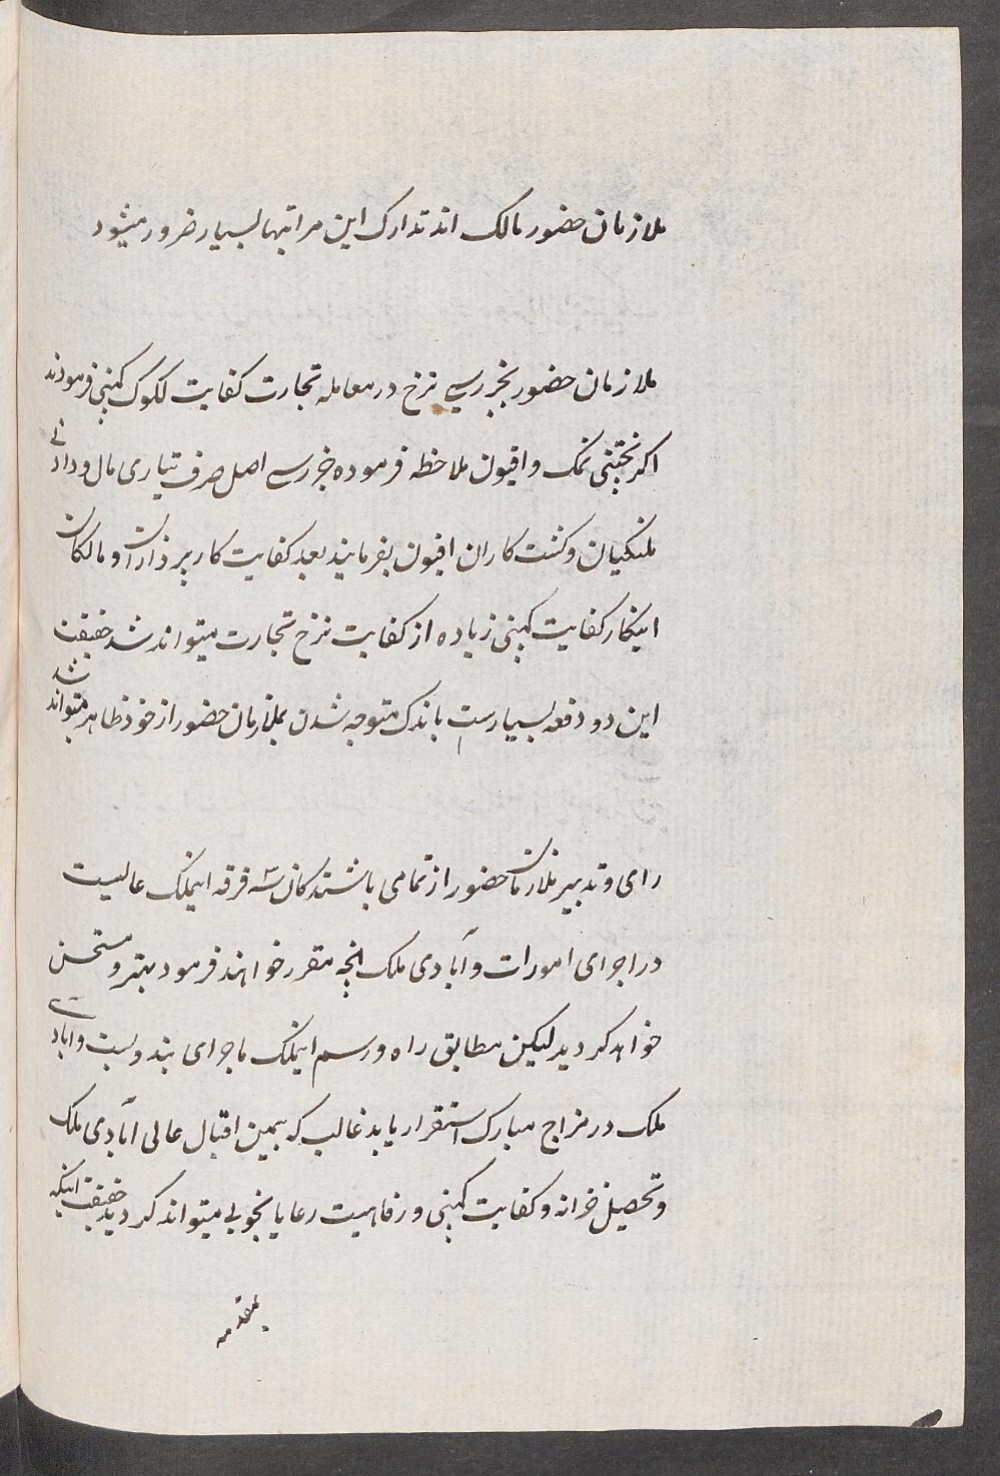 ملازمان حضور مالک اند تدارک این مراتبها بسیار ضرور میشود
ملازمان حضور بخبررسی نرخ در معامله تجارت کفایت لکوک کمپنی فرمودند
اکر نمک و افیون ملاحظه فرموده خبررسے اصل صرف تیاری مال و دادنی
ملنکیان و کشت کاران افیون بفرمایند بعد کفایت کاربردازان و مالکان
اینکار کفایت کمپنی زیاده از کفایت نرخ تجارت میتواند شد حقیقت
این دو دفعه بسیارست باندک متوجه شدن ملازمان حضور از خود ظاهر میتواند شد
رای و تدبیر ملازمان حضور از تمامی باشندکان سه فرقه اینملک عالیست
در اجرای امورات و آبادی ملک انچه مقرر خواهند فرمود بهتر و مستحسن
خواهد کردید لیکن مطابق راه و رسم اینملک ماجرای بندوبست و ابادی
ملک در مزاج مبارک استقرار یابد غالب که بیمین اقبال عالی آبادی ملک
و تحصیل خزانه و کفایت کمپنی و رفاهیت رعایا بخوبی میتواند کردید حقیقت اینکه
بمقدمه